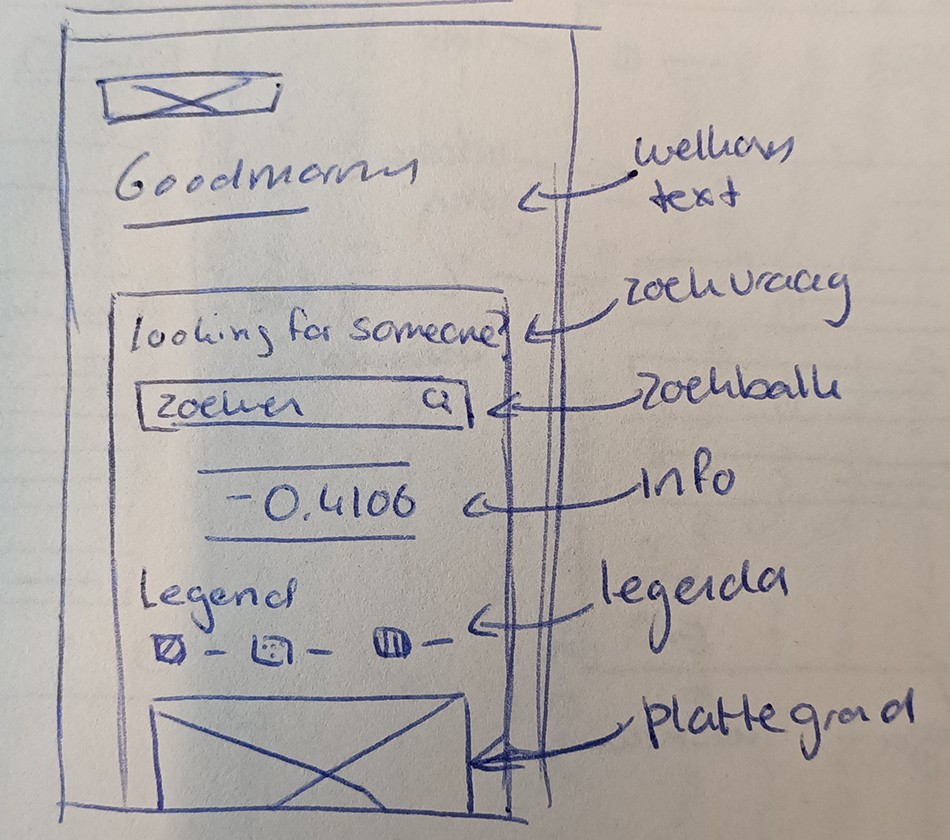 Goodmorning
welkoms
text
looking for someone?
zoekvraag
zoeken
zoekbalk
-0.4106
info
Legend
legenda
plattegrond